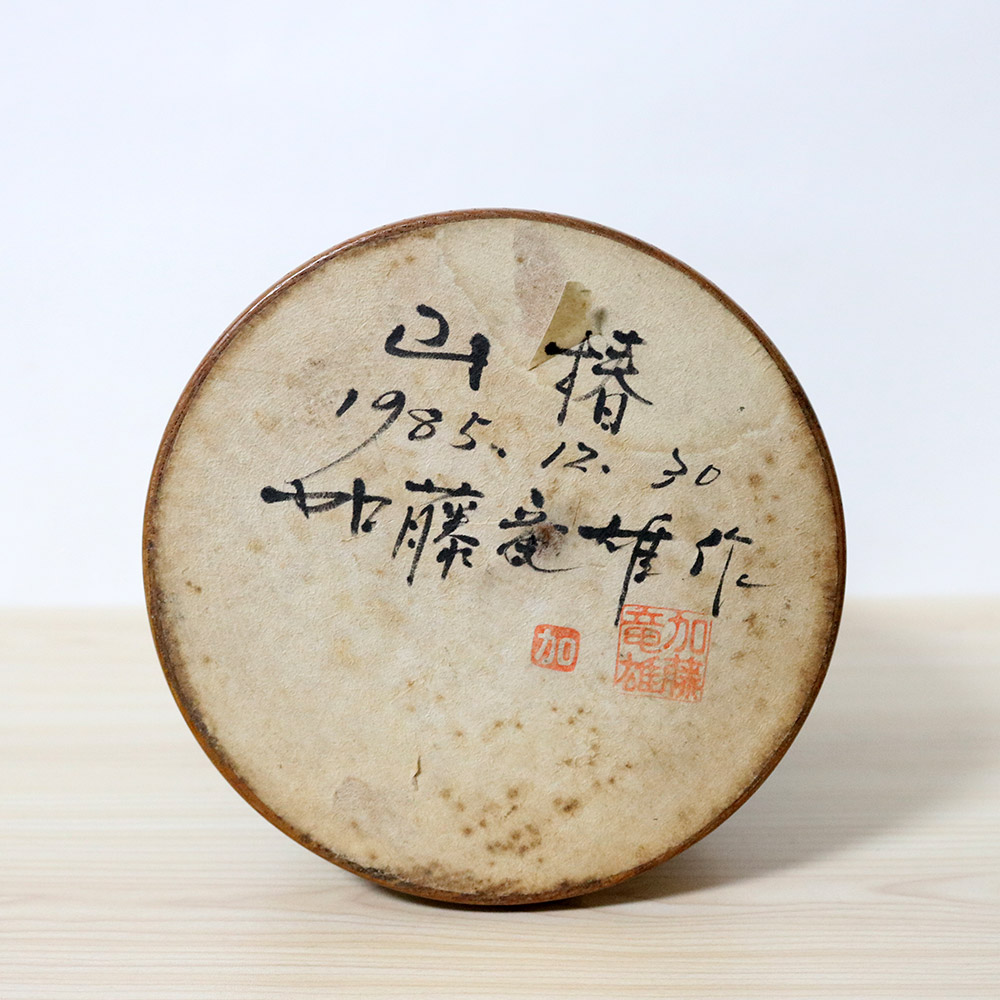 山椿
1985.12.30
加藤竜雄作
加
加藤竜雄